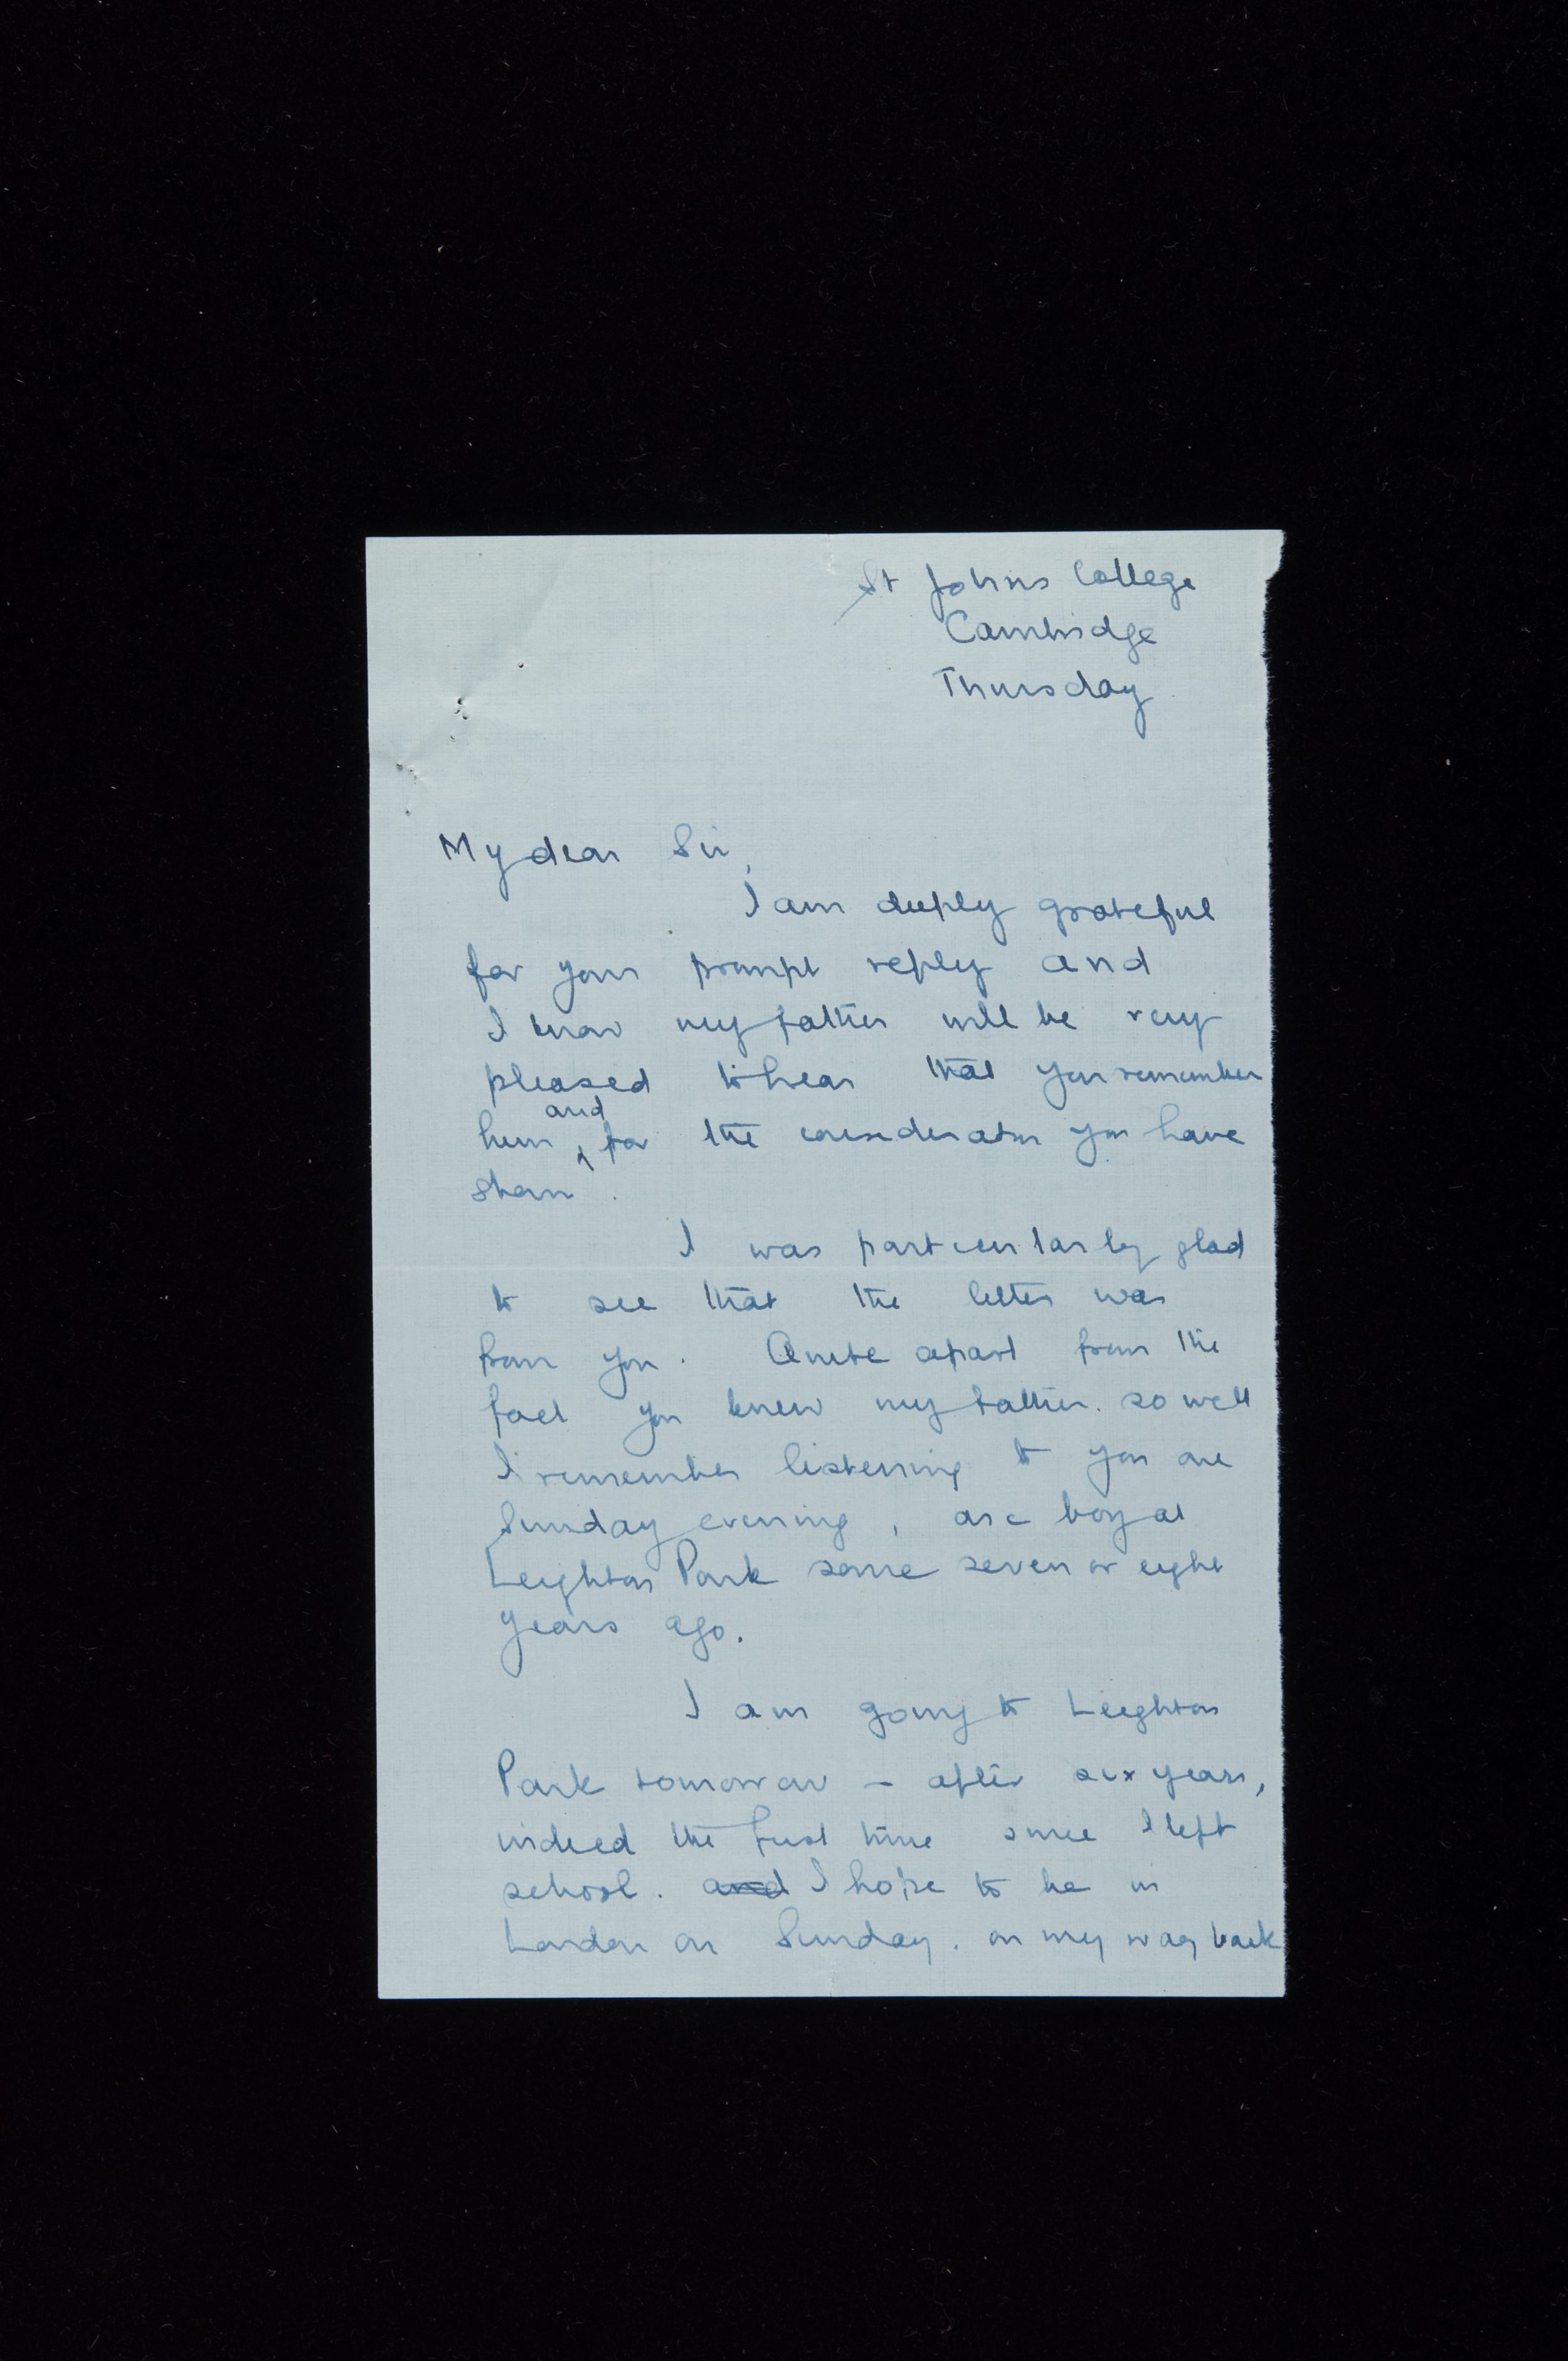 St Johns College
Cambridge
Thursday
My dear Sir,
I am deeply grateful
for your prompt reply and
I know my father will be very
pleased to hear that you remember
and
him for the consideration you have
shown.
I was particularly glad
to see that the letter was
from you. Quite apart from the
fact you knew my father. so well
I remember listening to you one
Sunday evening, as a boy at
Leighton Park some seven or eight
years ago.
I am going to Leighton
Park tomorrow – after six years,
indeed the first time since I left
school. and I hope to be in
London on Sunday. on my way back